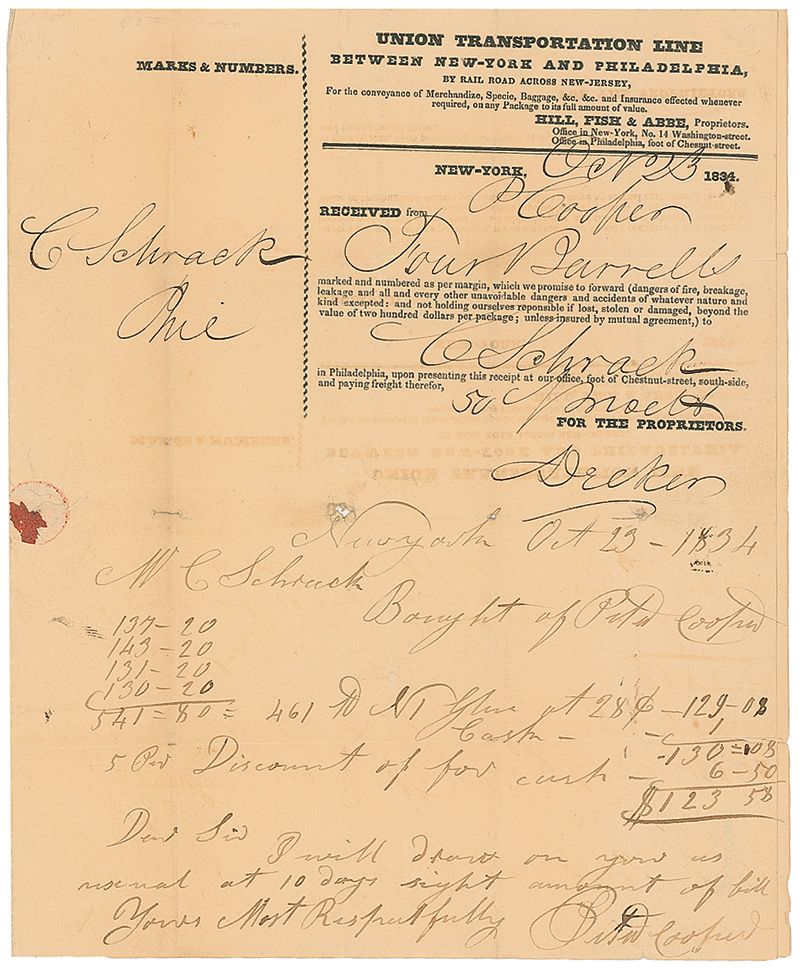 UNION TRANSPORTATION LINE
BETWEEN NEW-YORK AND PHILADELPHIA,
BY RAIL ROAD ACROSS NEW-JERSEY,
For the conveyance of Merchandize, Specie, Baggage, &c. &c. and Insurance effected whenever
required, on any Package to its full amount of value.
HILL, FISH & ABBE, Proprietors.
Office in New-York, No. 14 Washington-street.
Office in Philadelphia, foot of Chesnut-street.
MARKS & NUMBERS.
NEW-YORK, Oct 23 1834.
RECEIVED from P Cooper
Four Barrells
marked and numbered as per margin, which we promise to forward (dangers of fire, breakage,
leakage and all and every other unavoidable dangers and accidents of whatever nature and
kind excepted: and not holding ourselves reponsible if lost, stolen or damaged, beyond the
value of two hundred dollars per package; unless insured by mutual agreement,) to
C Schrack
in Philadelphia, upon presenting this receipt at our office, foot of Chestnut-street, south-side,
and paying freight therefor,
50
FOR THE PROPRIETORS.
Decker
C Schrack
Phil
New york Oct 23 - 1834
Mr C Schrack
Bought of Peter Cooper
137 - 20
143 - 20
131 - 20
130 - 20
541 = 80 = 461 lb N1 Glue at 28¢ - 129-08
Cash - 1
130=08
5 Per Discount of for cash - 6-50
$123 58
Dear Sir
I will draw on you as
usenal at 10 days sight amount of bill
Yours Most Respectfully Peter Cooper